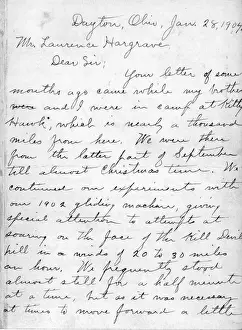 Dayton, Ohio, Jan. 28, 1904.
Mr. Lawrence Hargrave
Dear Sir;
Your letter of some
months ago came while my brother
and I were in camp at Kitty
Hawk, which is nearly a thousand
miles from here. We were there
from the latter part of September
till almost Christmas time. We
continued our experiments with
our 1902 gliding machine, giving
special attention to attempts at
soaring on the face of the Kill Devil
hill in a winds of 20 to 30 miles
an hour. We frequently stood
almost still for a half minute
at a time, but as it was necessary
at times to move forward a little